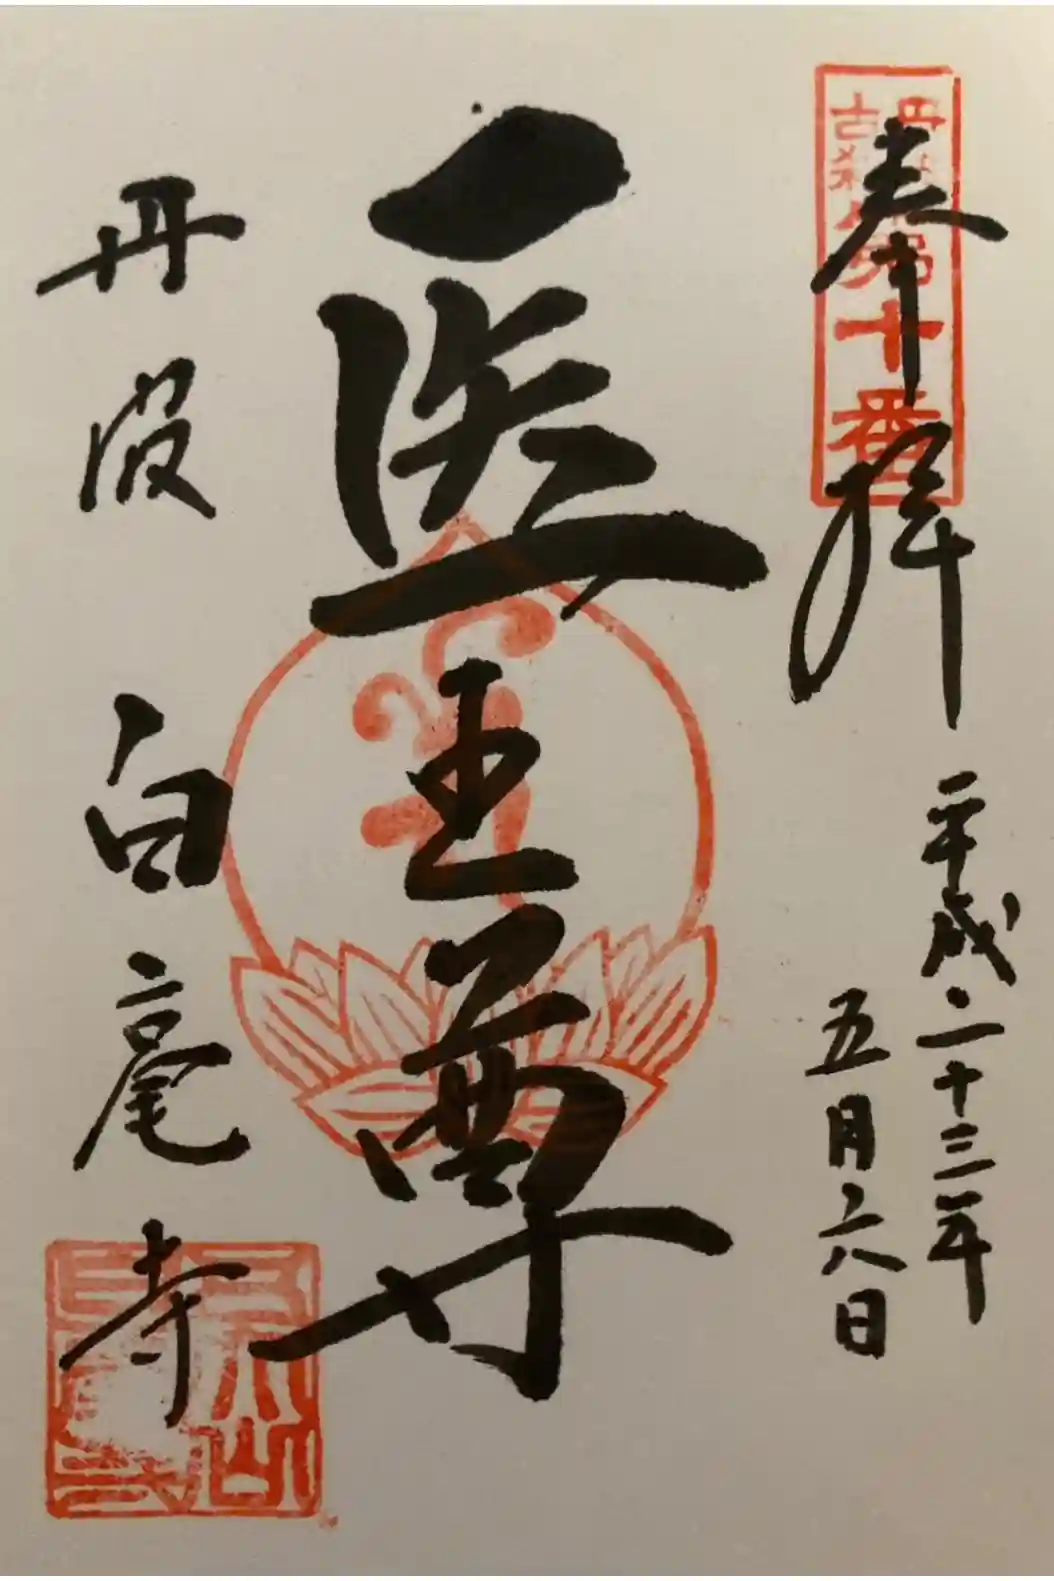 奉拝
平成二十三年
五月六日
医王尊
丹波
白毫寺
第十番